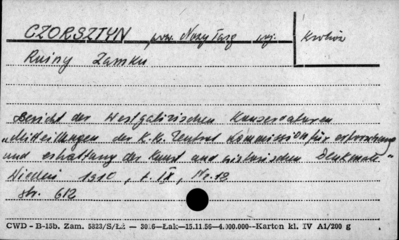 CZORSZTYN pow. Nowy Targ woj. Kraków
Ruiny Zamku
Bericht der Westgalizischen Konservatoren
"Mitteilungen der K.K. Zentral Kommission für erforschung
und erhaltung der Kunst und historischen Denkmale"
Wiedeń 1910, t. IX, No. 13
str. 612
CWD - B-15b, Zam. 5823/S/Lz — 30/6—Łak—15.11.50—4.000.000—Karton kl. IV A1/200 g